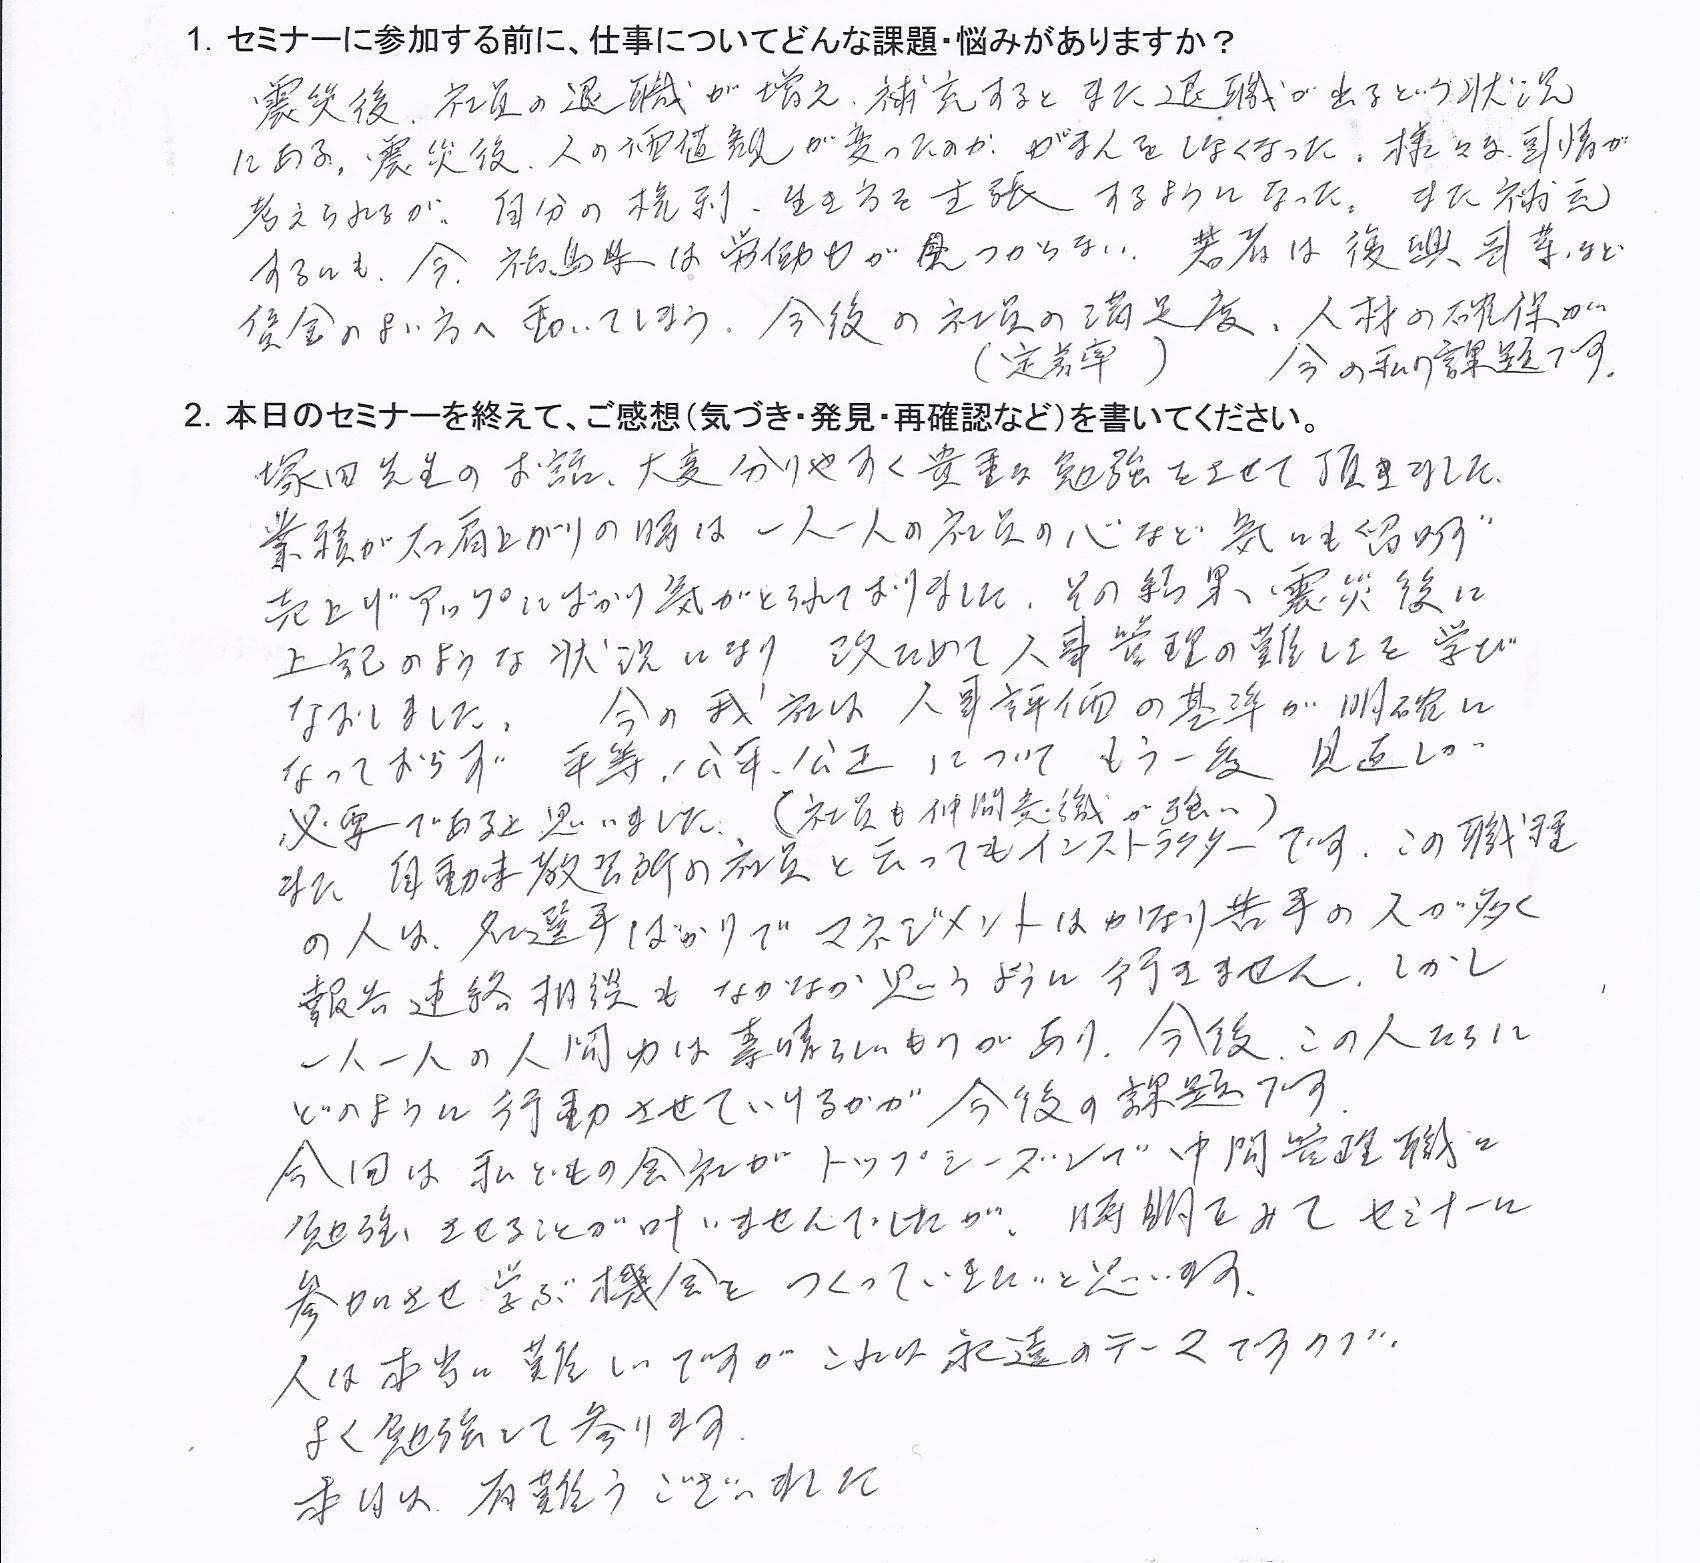 1. セミナーに参加する前に、仕事についてどんな課題・悩みがありますか？
震災後、社員の退職が増え、補充するとまた退職が出るという状況
にある。震災後、人の価値観が変ったのか、がまんをしなくなった。様々な事情が
考えられるが、自分の権利、生き方を主張するようになった。また補充
するにも、今、福島県は労働力が見つからない。若者は復興事業など
賃金のよい方へ動いてしまう。今後の社員の満足度、人材の確保が
(定着率) 今の私の課題です。
2. 本日のセミナーを終えて、ご感想(気づき・発見・再確認など)を書いてください。
塚田先生のお話、大変分りやすく貴重な勉強をさせて頂きました。
業績が右肩上がりの時は一人一人の社員の心など気にも留めず
売上げアップにばかり気がとられておりました。その結果、震災後に
上記のような状況になり 改ためて人事管理の難しさを学び
なおしました。 今の我社は人事評価の基準が明確に
なっておらず 平等、公平、公正についてもう一度見直しが
必要であると思いました。(社員も仲間意識が強い)
また 自動車教習所の社員と云ってもインストラクターです。この職種
の人は、名選手ばかりでマネジメントはかなり苦手の人が多く
報告連絡相談もなかなか思うように行きません。しかし
一人一人の人間力は素晴らしいものがあり、今後、この人たちに
どのように行動させていけるかが今後の課題です。
今回は私どもの会社がトップシーズンで中間管理職に
勉強させることが叶いませんでしたが、時期をみてセミナーに
参加させ学ぶ機会をつくっていきたいと思います。
人は本当に難しいですがこれは永遠のテーマですので、
よく勉強して参ります。
本日は、有難うございました